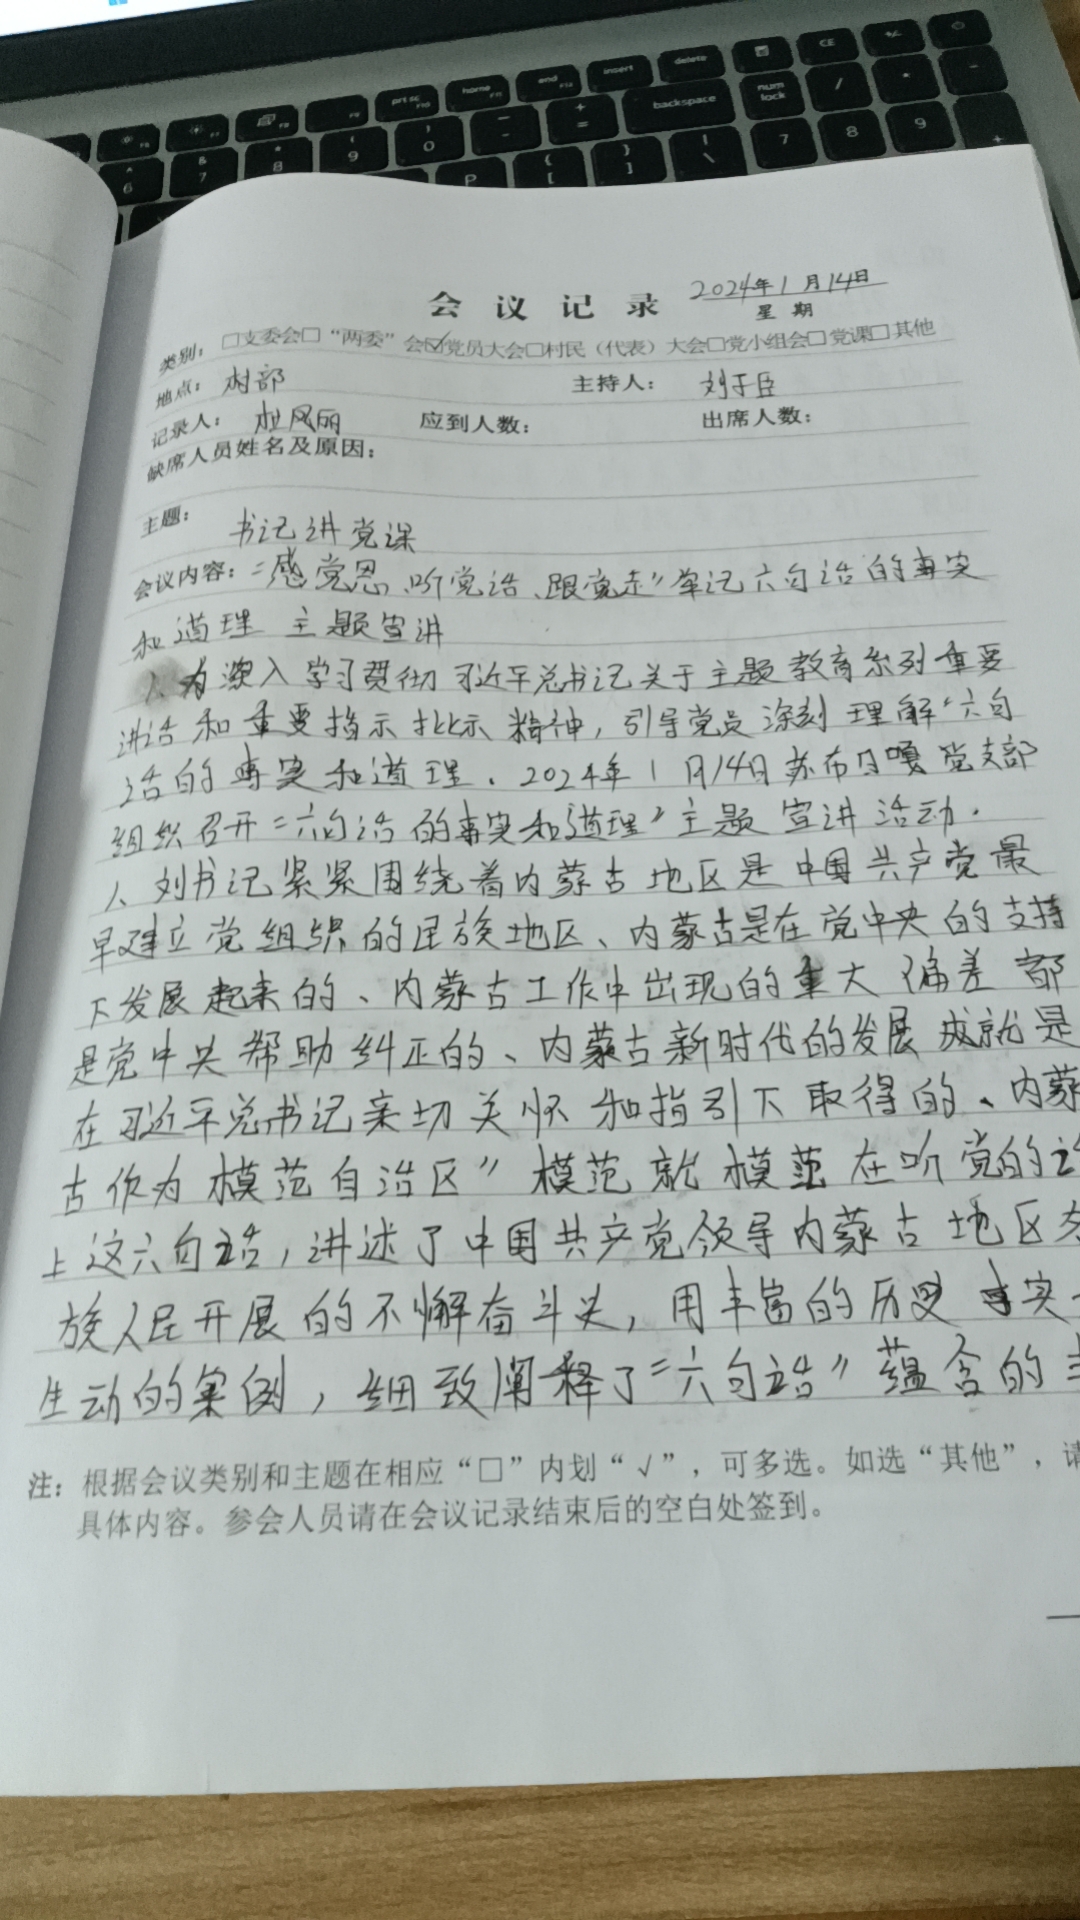 prt sc
home
end
insert
delete
CE
+/-
backspace
num lock
/
*
-
6
7
8
9
0
-
+
=
P
{
[
}
]
|
\
7
8
9
+
会议记录 2024年1月14日
星期
类别：□支委会□“两委”会☑党员大会□村民（代表）大会□党小组会□党课□其他
地点：村部 主持人：刘于臣
记录人：风丽 应到人数： 出席人数：
缺席人员姓名及原因：
主题：书记讲党课
会议内容：“感党恩、听党话、跟党走”牢记六句话的事实
和道理 主题宣讲
1、为深入学习贯彻习近平总书记关于主题教育系列重要
讲话和重要指示批示精神，引导党员深刻理解“六句
话的事实和道理、2024年1月14日苏布日嘎党支部
组织召开“六句话的事实和道理”主题宣讲活动.
1、刘书记紧紧围绕着内蒙古地区是中国共产党最
早建立党组织的民族地区、内蒙古是在党中央的支持
下发展起来的、内蒙古工作中出现的重大偏差都
是党中央帮助纠正的、内蒙古新时代的发展成就是
在习近平总书记亲切关怀和指引下取得的、内蒙
古作为模范自治区”模范就模范在听党的
上这六句话，讲述了中国共产党领导内蒙古地区
族人民开展的不懈奋斗头，用丰富的历史事实
生动的案例，细致阐释了“六句话”蕴含的
注：根据会议类别和主题在相应“□”内划“√”，可多选。如选“其他”，请
具体内容。参会人员请在会议记录结束后的空白处签到。